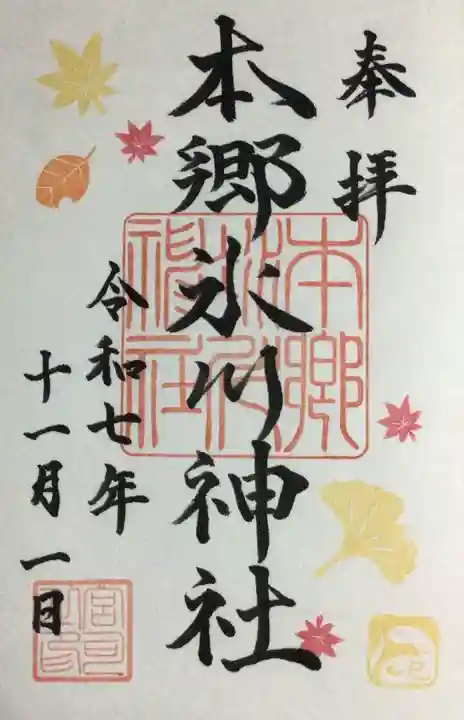 奉拝
本郷氷川神社
本郷
氷川
神社
令和七年
十一月一日